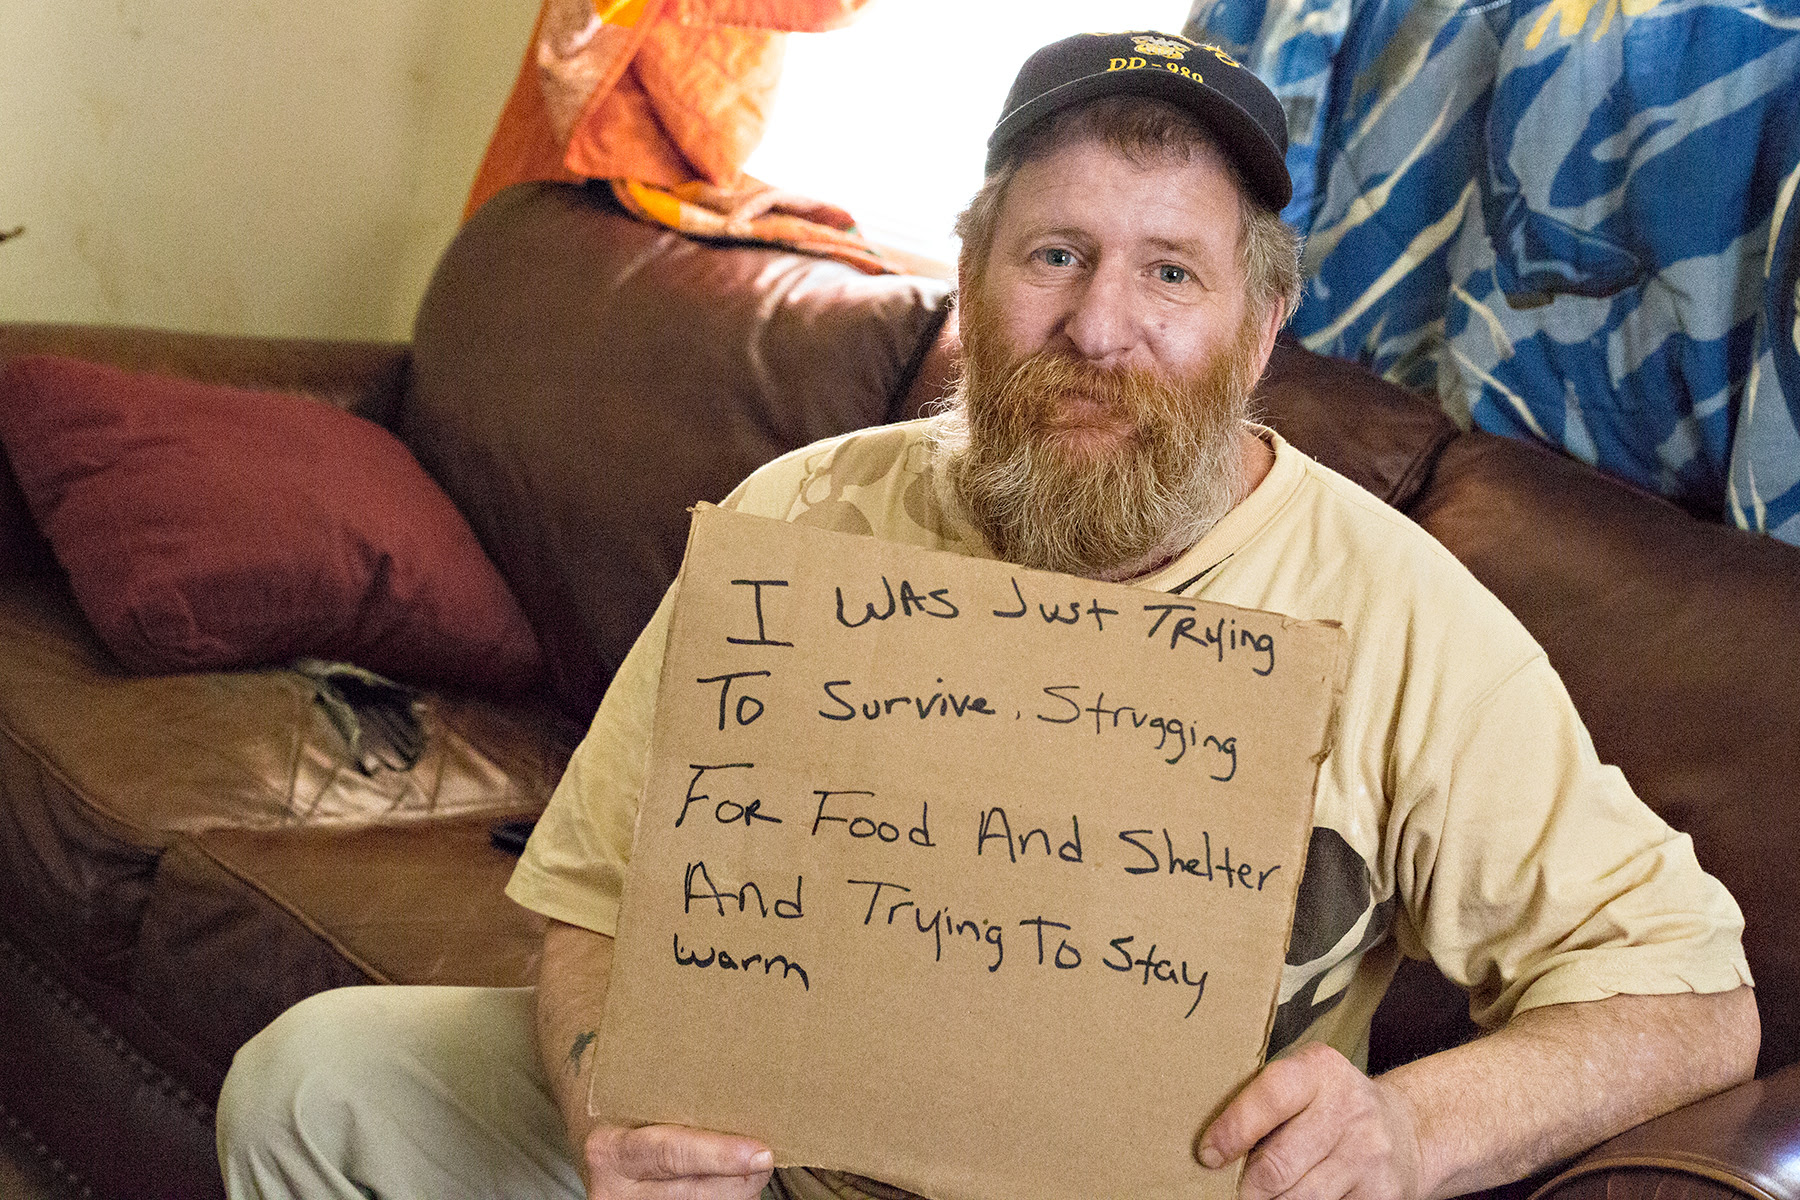 DD-989
I WAS Just TRying
To Survive, Struggling
FOR Food And Shelter
And Trying To Stay
warm